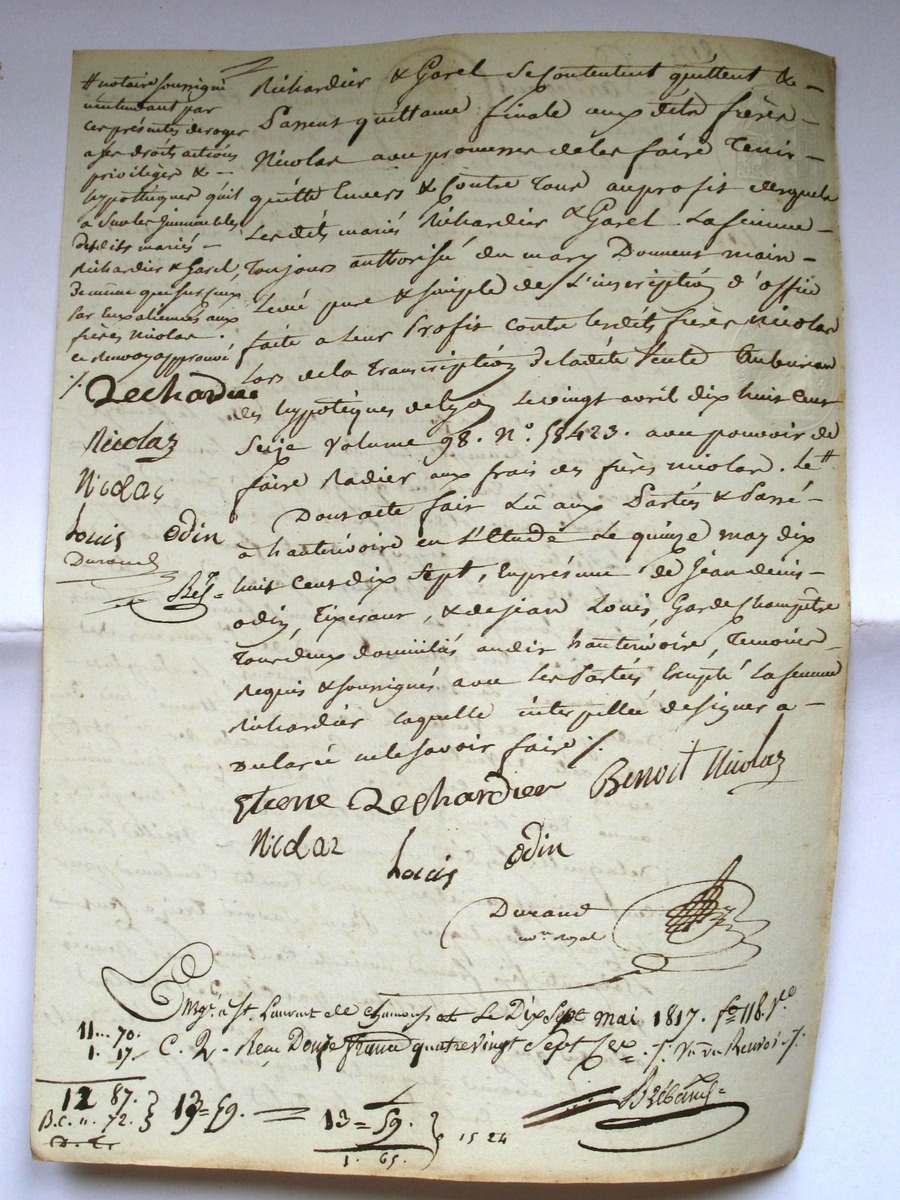 # notaire soussigné
n'entendant par
ces présentes deroger
a ses droits actions
privilèges & -
hypothèques qu'il
a sur les immeubles
desdits mariés -
Richardier & Garel,
de même que sur ceux
par eux aliénés aux
frères Nicolas.
ce renvoy approuvé
./.
Rechardier
Nicolaz
Nicolas
Louis Odin
Durand
Richardier & Garel se contentent quittent & -
Passent quittance finale aux dits frères -
Nicolas avec promesse de les faire Tenir -
quitte Envers & Contre Tous au profit desquels
Lesdits mariés Richardier & Garel La femme -
Toujours authorisée du mary Donnent main -
Levée pure & simple de L'inscription d'office
faite a leur Profit contre lesdits frères Nicolas
Lors de la Transcription de ladite Vente Au bureau
des hypotèques de Lyon Le vingt avril dix huit Cent
Seize Volume 98. N.° 58423. avec pouvoir de
faire Radier aux frais des frères Nicolas. Le #
Dont acte fait Lu aux Parties & Passé -
à hauterivoire en L'Etude Le quinze may dix
huit Cent dix Sept, En présence de Jean denis -
odin, Tixerant, & de jean Louis, Garde Champêtre
Tous deux domiciliés audit hauterivoire, Temoins
Requis & soussignés avec les Parties Excepté La femme
Richardier laquelle interpellée de signer a -
Declaré ne le savoir faire ./.
Etiene Rechardier Benoit Nicolaz
Nicolaz Louis Odin
Durand
no.re royal
Enrg.é à St. Laurent de Chamousset Le Dix Sept mai 1817. f.o 118. V.o
C. Reçu Douze francs quatre vingt Sept Cex
11... 70.
1. 17
12 87.
B.C. .. 72.
13 = 59. =
13 = 59.
1. 65.
15 24